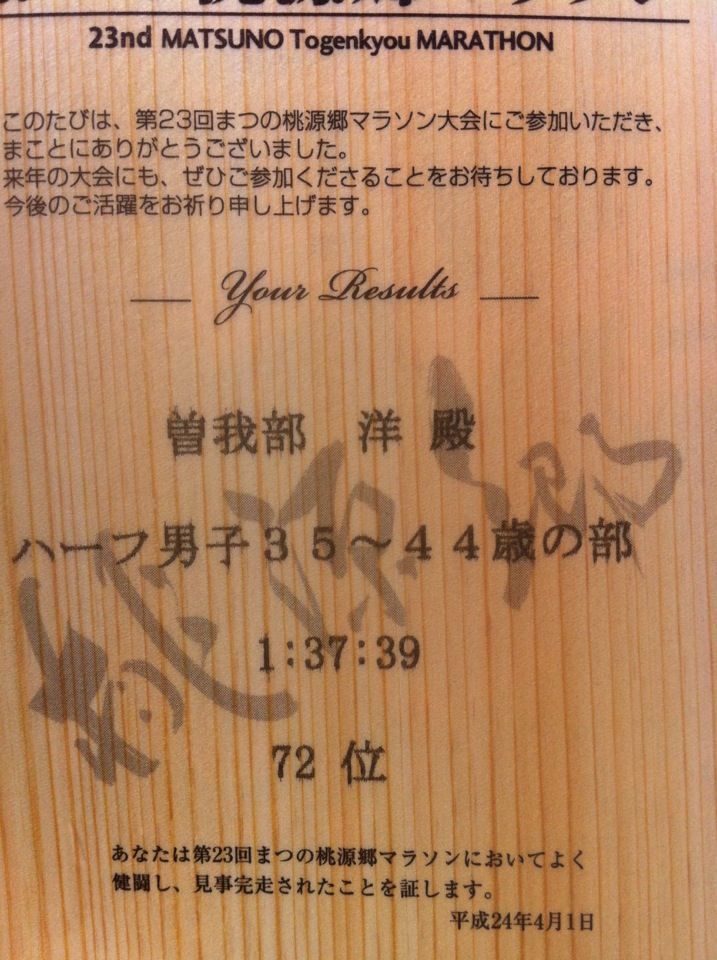 23nd MATSUNO Togenkyou MARATHON
このたびは、第23回まつの桃源郷マラソン大会にご参加いただき、
まことにありがとうございました。
来年の大会にも、ぜひご参加くださることをお待ちしております。
今後のご活躍をお祈り申し上げます。
Your Results
曽我部 洋 殿
ハーフ男子35〜44歳の部
1:37:39
72 位
桃源郷
あなたは第23回まつの桃源郷マラソンにおいてよく
健闘し、見事完走されたことを証します。
平成24年4月1日